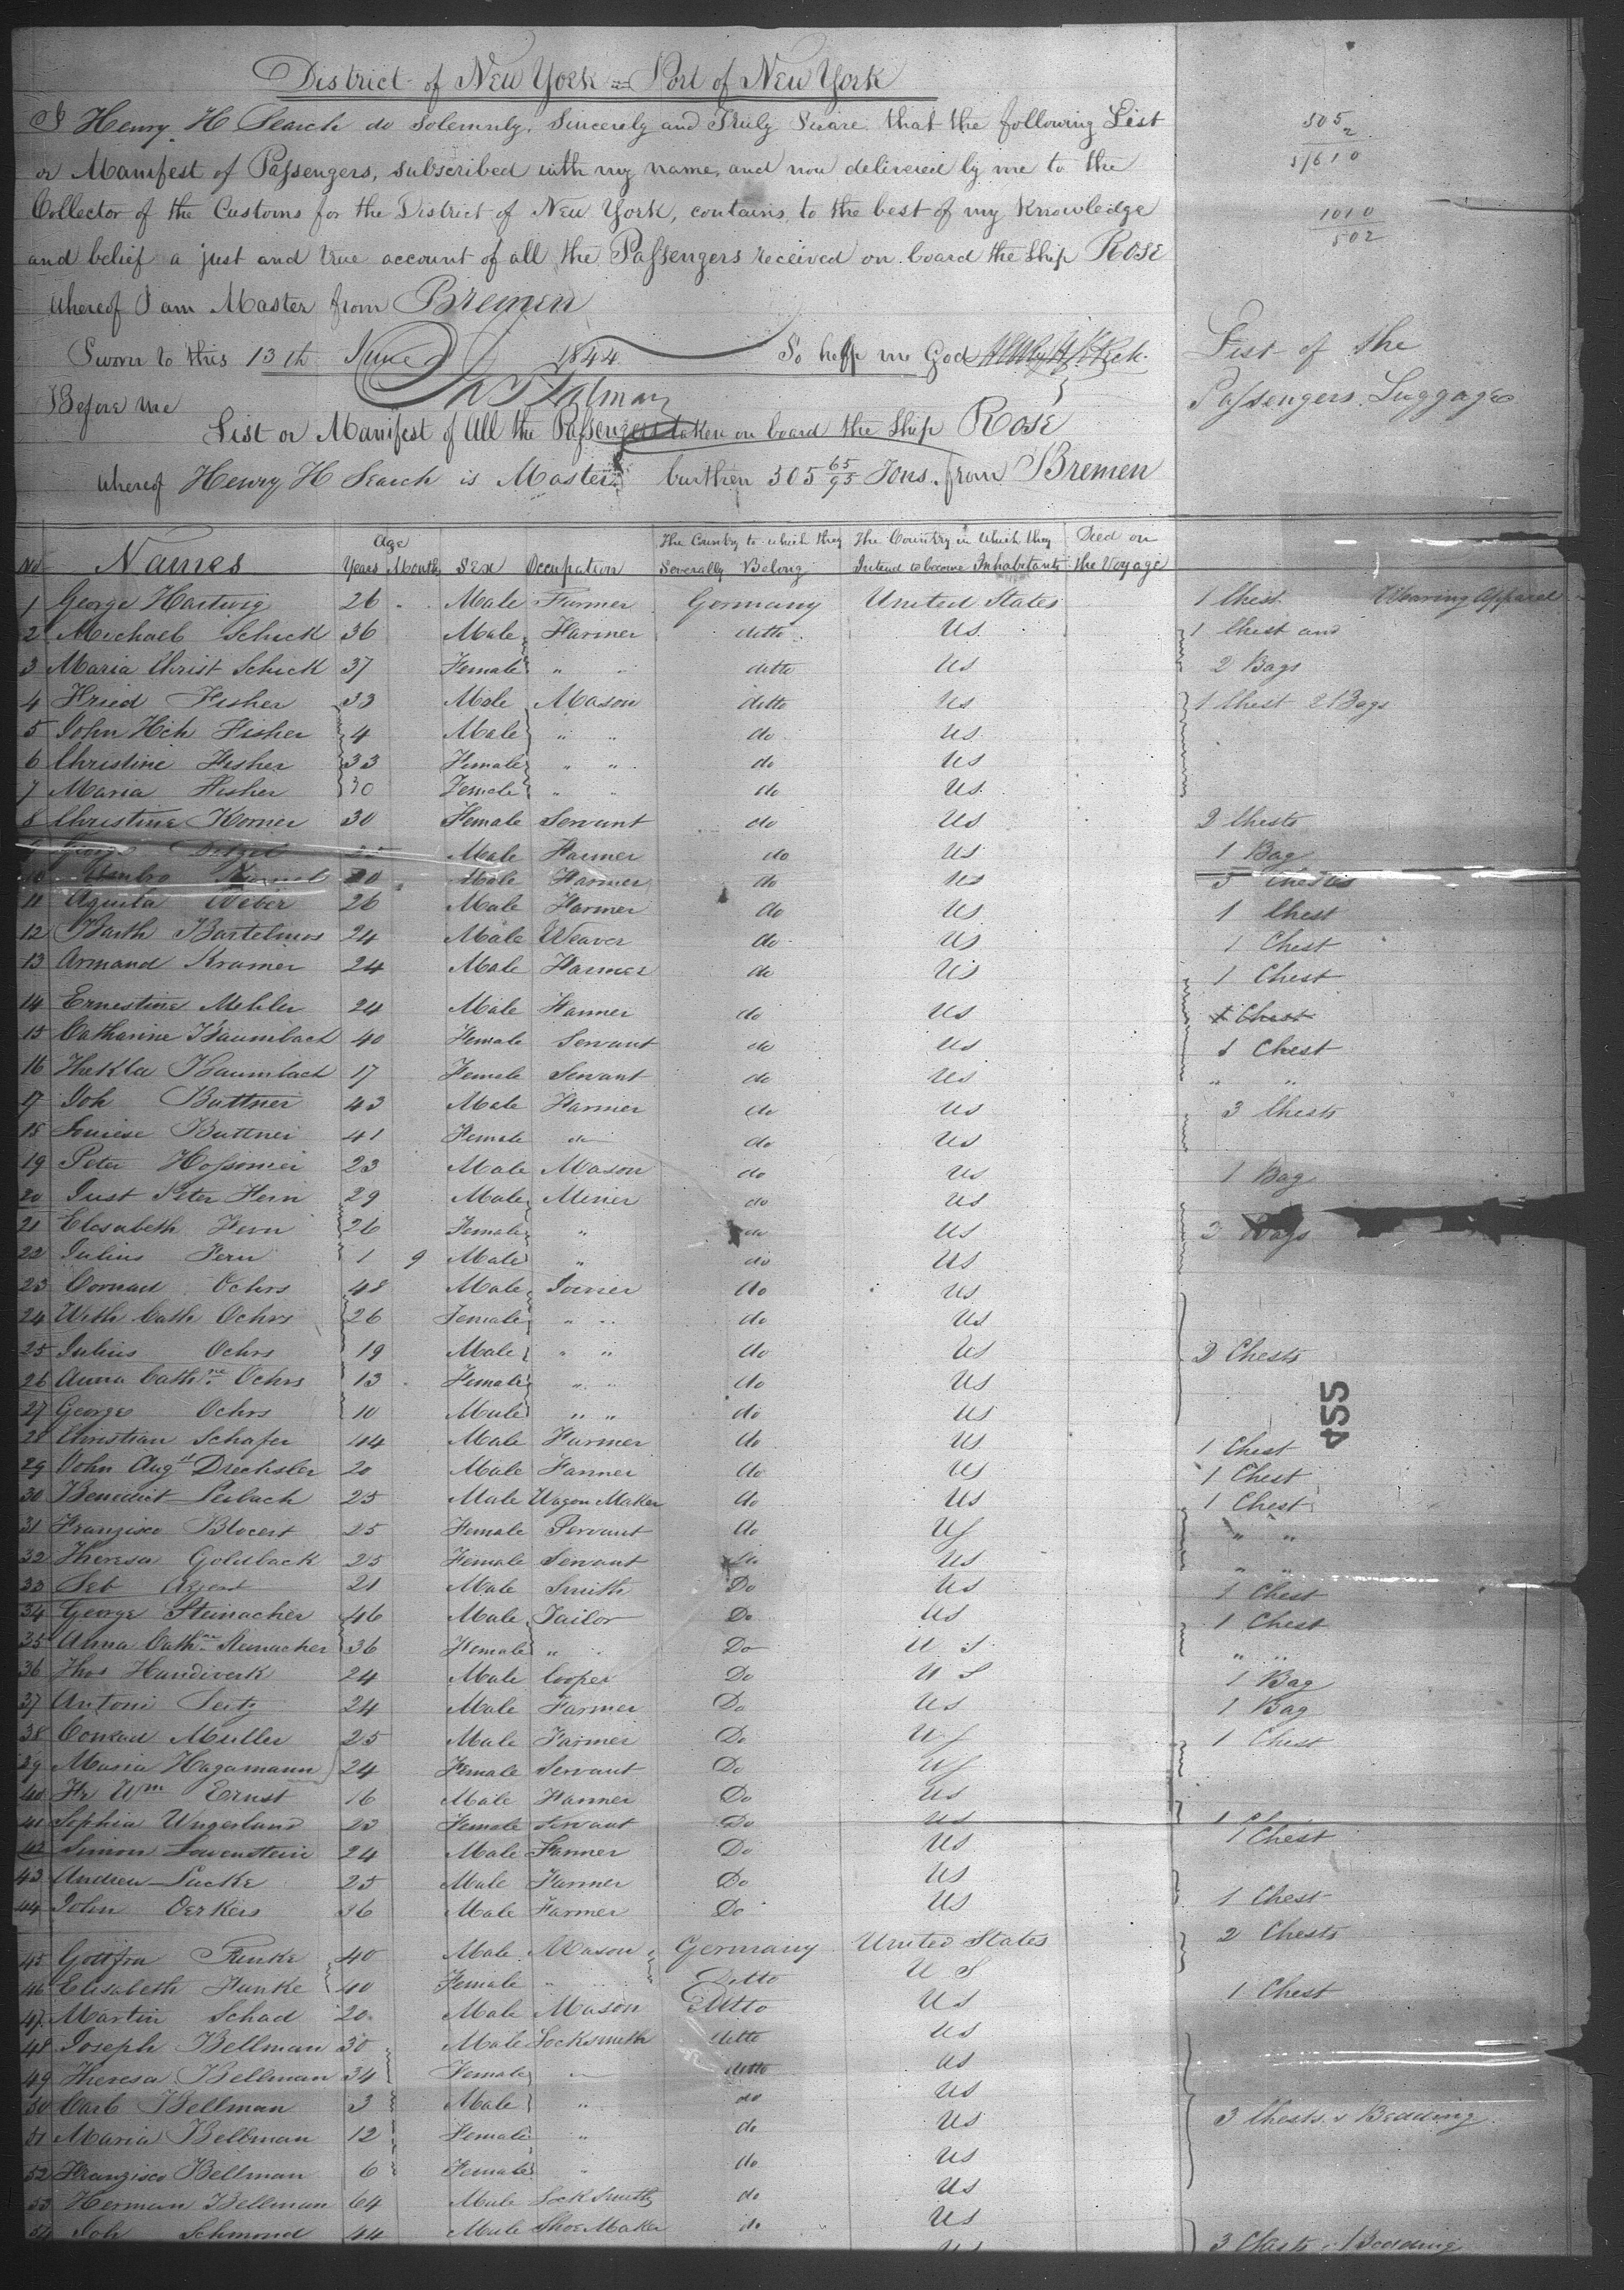 District of New York = Port of New York
I Henry H Search do Solemnly, Sincerely and Truly Sware that the following List
or Manifest of Passengers, subscribed with my name, and now delivered by me to the
Collector of the Customs for the District of New York, contains, to the best of my Knowledge
and belief a just and true account of all the Passengers received on board the Ship Rose
whereof I am Master from Bremen
Sworn to this 13th June 1844 So help me God
Before me
List or Manifest of All the Passengers taken on board the Ship Rose
whereof Henry H Search is Master burthen 305 65/95 Tons. from Bremen
305
2
610
1010
502
List of the
Passengers Luggage
No Names Age Years Months Sex Occupation The Country to which they Severally Belong The Country in which they Intend to become Inhabitants Died on the Voyage
1 George Hartwig 26 Male Farmer Germany United States 1 Chest Waring Apparel
2 Michael Schick 36 Male Farmer ditto US 1 Chest and
3 Maria Christ Schick 37 Female " " ditto US 2 Bags
4 Fried Fisher 33 Male Mason ditto US 1 Chest 2 Bags
5 John Hch Fisher 4 Male " " do US
6 Christine Fisher 33 Female " " do US
7 Maria Fisher 30 Female " " do US
8 Christine Korner 30 Female Servant do US 2 Chests
9 George 25 Male Farmer do US 1 Bag
10 Male Farmer do US 3 Chests
11 Weber 26 Male Farmer do US 1 Chest
12 Barth Bartelmes 24 Male Weaver do US 1 Chest
13 Armand Kramer 24 Male Farmer do US 1 Chest
14 Ernestine Mehler 24 Male Farmer do US 1 Chest
15 Catharine Baumbach 40 Female Servant do US 1 Chest
16 Thekla Baumbach 17 Female Servant do US " "
17 Joh Buttner 43 Male Farmer do US 3 Chests
18 Louiese Buttner 41 Female do do US
19 Peter Hossomer 23 Male Mason do US 1 Bag
20 Just Peter Fern 29 Male Miner do US
21 Elesabeth Fern 26 Female " do US 3 Bags
22 Julius Fern 1 9 Male " do US
23 Cornad Ochrs 48 Male Joiner do US
24 With Cath Ochrs 26 Female " " do US
25 Julius Ochrs 19 Male " " do US 2 Chests
26 Anna Cathne Ochrs 13 Female " " do US
27 George Ochrs 10 Male " " do US
28 Christian Schafer 44 Male Farmer do US 1 Chest
29 John Augst Drechsler 20 Male Farmer do US 1 Chest
30 Benedict Lesbach 25 Male Wagon Maker do US 1 Chest
31 Franzisca Blocert 25 Female Servant do US " "
32 Theresa Goldback 25 Female Servant do US " "
33 Seb 21 Male Smith Do US 1 Chest
34 George Steinacher 46 Male Tailor Do US 1 Chest
35 Anna Cathne Steinacher 36 Female " Do U S " "
36 Thos Handiverk 24 Male Cooper Do U S 1 Bag
37 Antoni Seitz 24 Male Farmer Do US 1 Bag
38 Conrad Muller 25 Male Farmer Do US 1 Chest
39 Maria Hagamann 24 Female Servant Do US
40 Fr Wm Ernst 16 Male Farmer Do US
41 Sophia Ungerland 23 Female Servant Do US 1
42 Simon Lowenstein 24 Male Farmer Do US 1 Chest
43 Andrew Lucke 25 Male Farmer Do US
44 John Oerkers 36 Male Farmer Do US 1 Chest
45 Gottfra Funke 40 Male Mason Germany United States 2 Chests
46 Elisabeth Funke 40 Female " Ditto U S
47 Martin Schad 20 Male Mason Ditto US 1 Chest
48 Joseph Bellman 30 Male Locksmith ditto US
49 Theresa Bellman 34 Female ditto US
50 Carl Bellman 3 Male " do US
51 Maria Bellman 12 Female " do US 3 Chests & Bedding
52 Franzisca Bellman 6 Female " do US
53 Herman Bellman 64 Male Lock Smith do US
54 Joh Schmond 44 Male Shoe Maker do US 3 Chests 1 Bedding
455